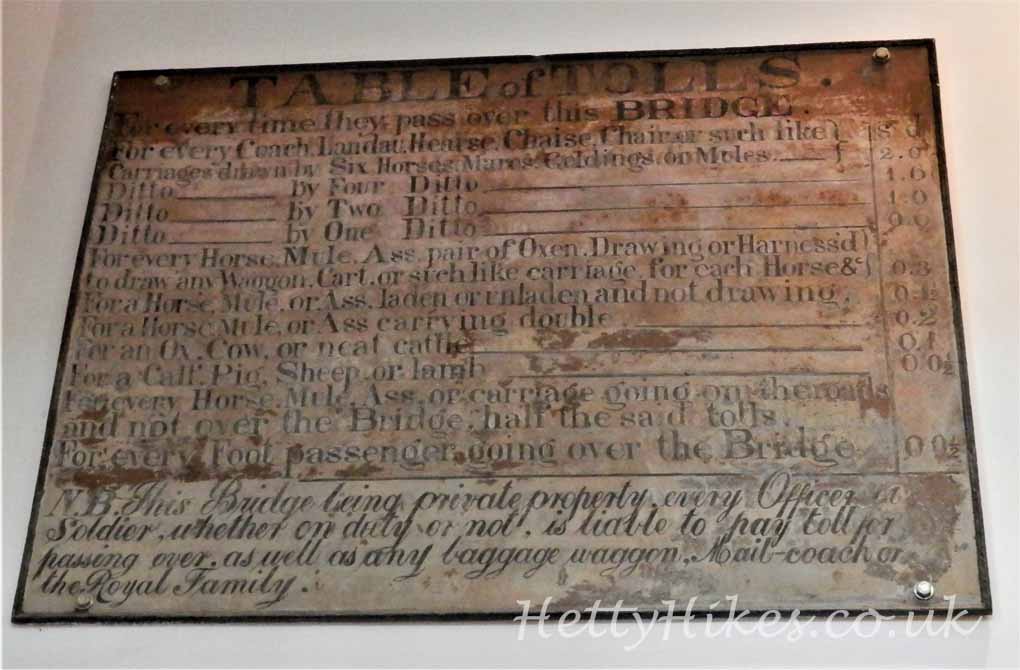 TABLE of TOLLS.
For every time they pass over this BRIDGE.
For every Coach, Landau, Hearse, Chaise, Chair, or such like } s d
Carriages drawn by Six Horses, Mares, Geldings, or Mules. 2.0
Ditto by Four Ditto 1.0
Ditto by Two Ditto 1.0
Ditto by One Ditto
For every Horse, Mule, Ass, pair of Oxen, Drawing or Harness'd }
to draw any Waggon, Cart, or such like carriage, for each Horse &c 0.3
For a Horse, Mule, or Ass, laden or unladen and not drawing,
For a Horse, Mule, or Ass carrying double 0.2
For an Ox, Cow, or neat cattle 0.1
For a Calf, Pig, Sheep, or lamb 0.0½
For every Horse, Mule, Ass, or carriage going on the roads
and not over the Bridge, half the said tolls.
For every Foot passenger going over the Bridge 0 0½
N.B. This Bridge being private property, every Officer or
Soldier, whether on duty or not, is liable to pay toll for
passing over, as well as any baggage waggon, Mail-coach or
the Royal Family.
HettyHikes.co.uk